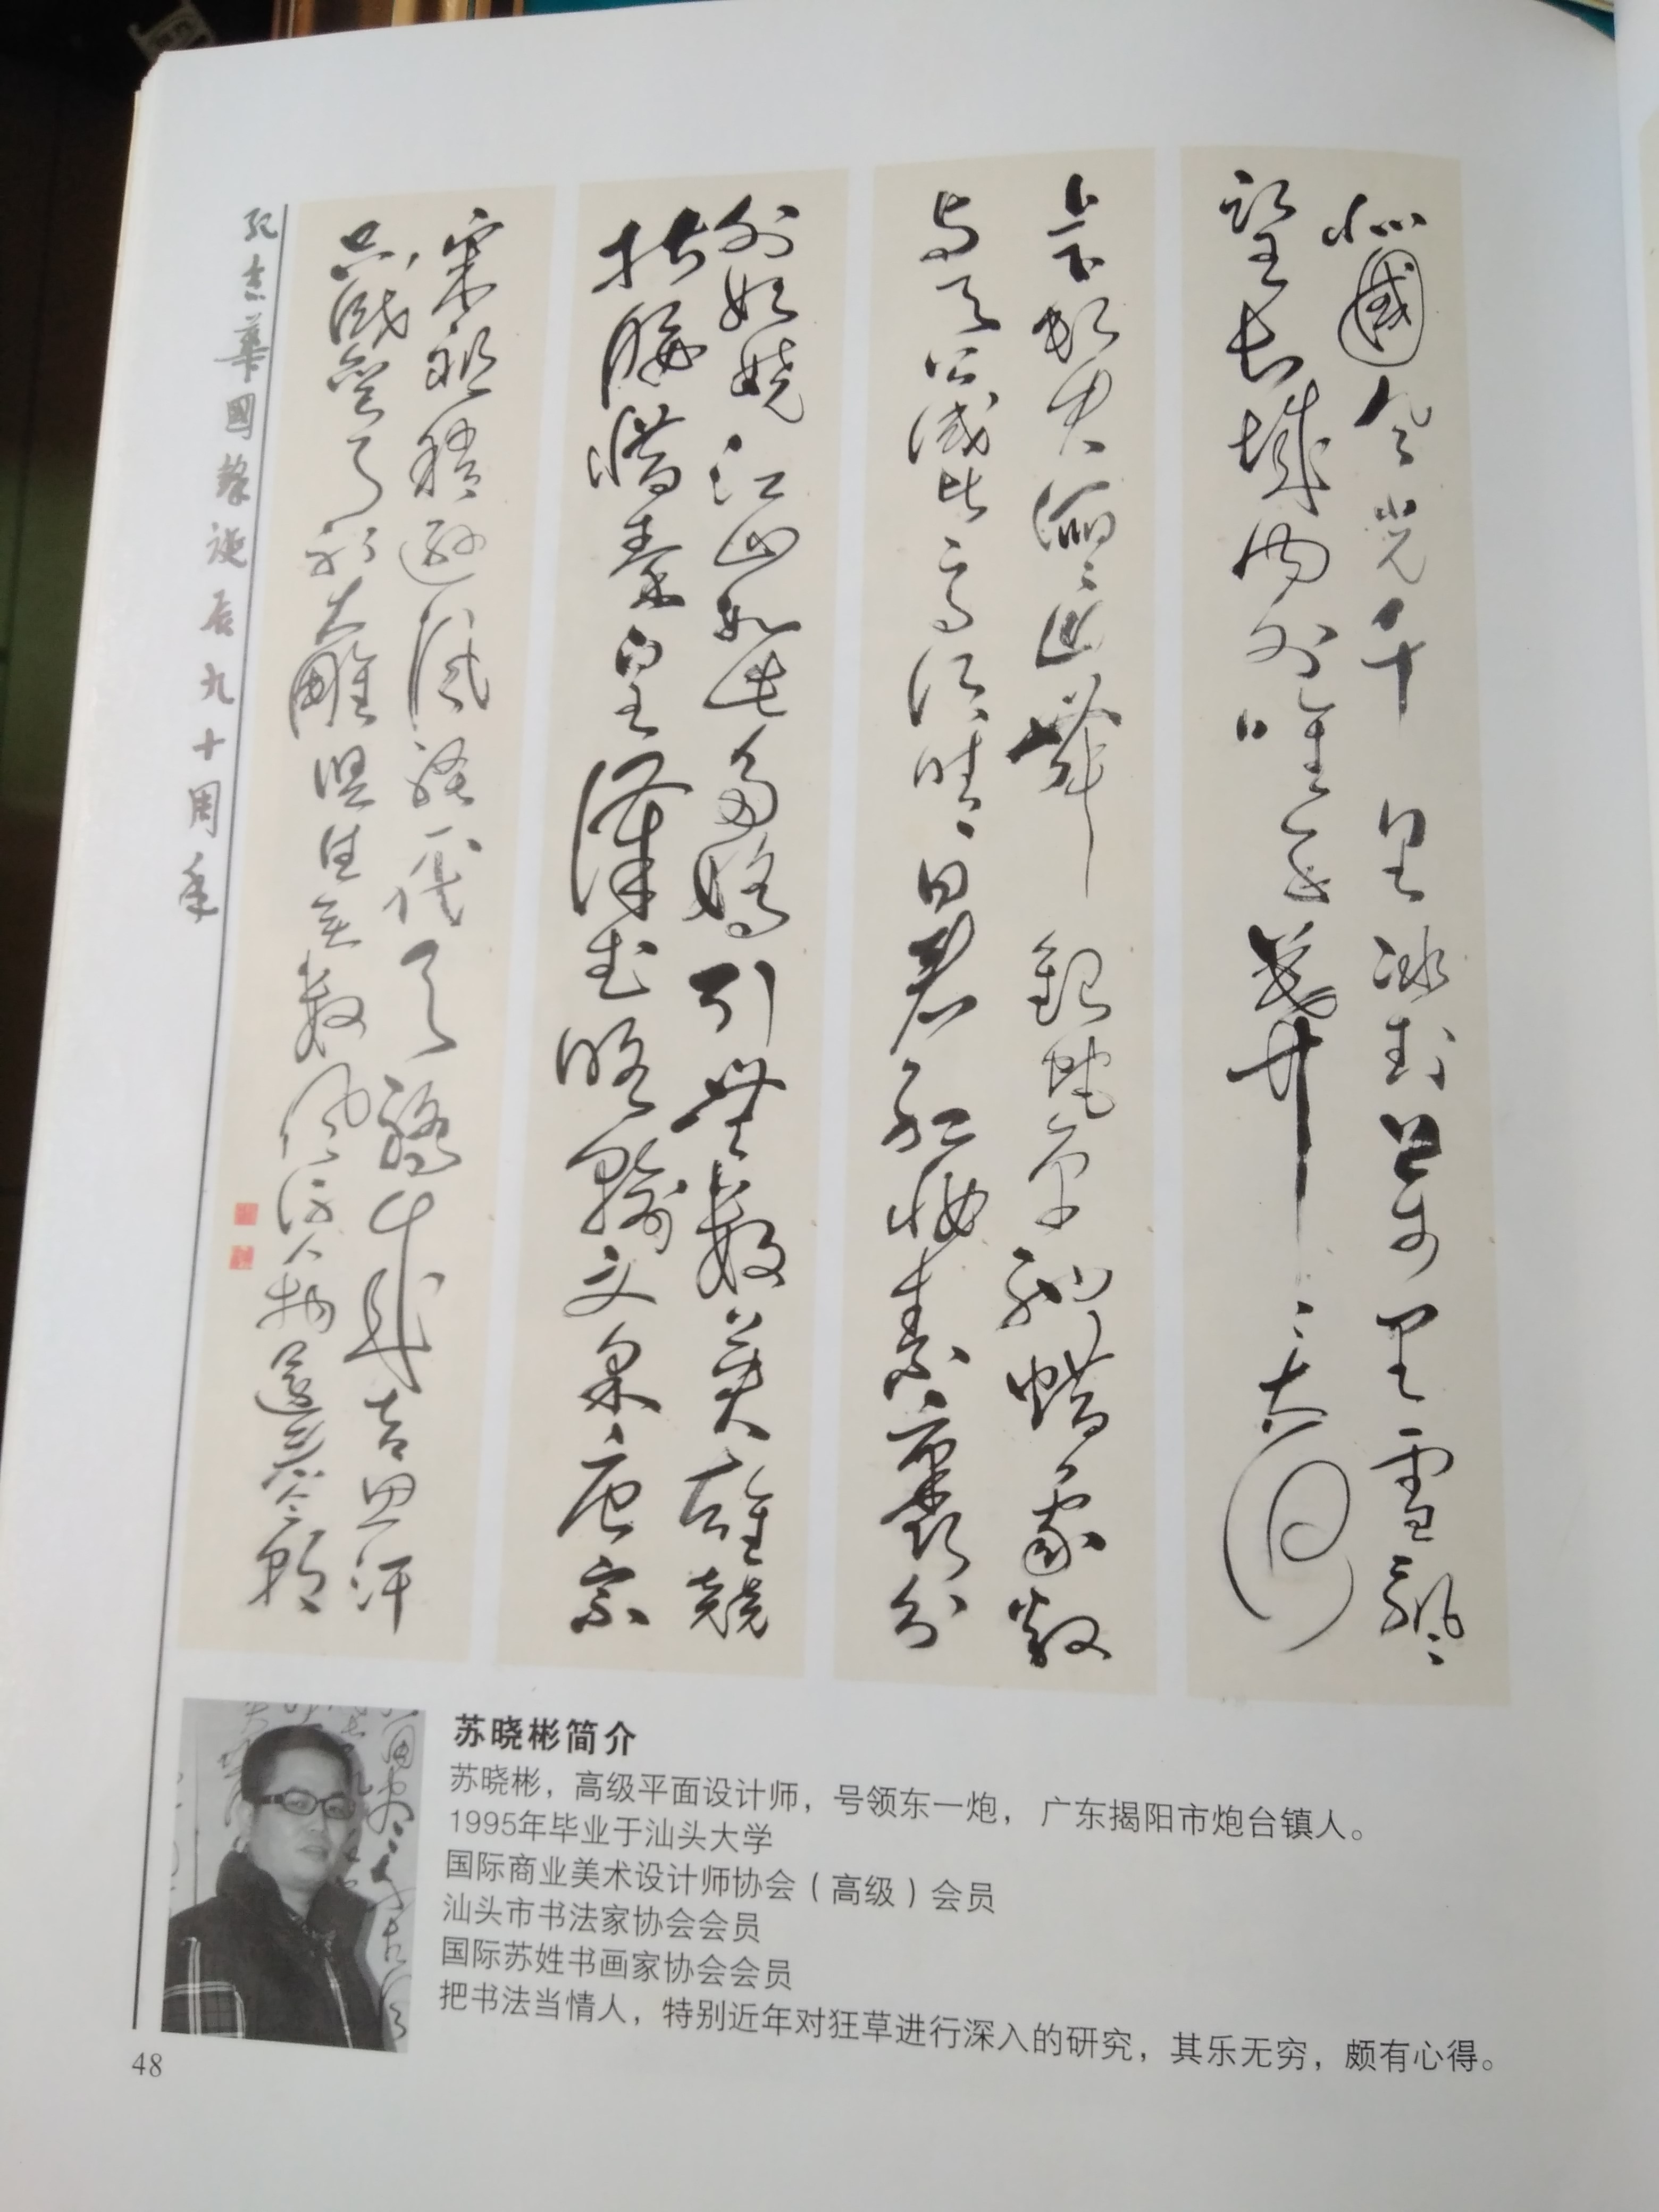 北國風光千里冰封萬里雪飄
望長城內外唯餘莽莽大河
上下頓失滔滔山舞銀蛇原馳蠟象欲
與天公試比高須晴日看紅妝素裹分
外妖嬈江山如此多嬌引無數英雄競
折腰惜秦皇漢武略輸文采唐宗
宋祖稍遜風騷一代天驕成吉思汗
只識彎弓射大雕俱往矣數風流人物還看今朝
紀念華國鋒誕辰九十周年
苏晓彬简介
苏晓彬，高级平面设计师，号领东一炮，广东揭阳市炮台镇人。
1995年毕业于汕头大学
国际商业美术设计师协会（高级）会员
汕头市书法家协会会员
国际苏姓书画家协会会员
把书法当情人，特别近年对狂草进行深入的研究，其乐无穷，颇有心得。
48